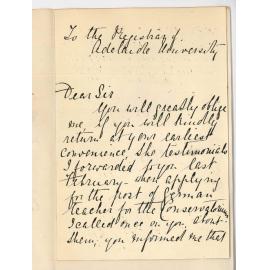 To the Registrar
Adelaide University
Dear Sir
You will greatly oblige
me if you will kindly
return at your earliest
convenience, the testimonials
I forwarded to you last
February when applying
for the post of German
teacher for the Conservatorium
I called once on you about
them, you informed me that